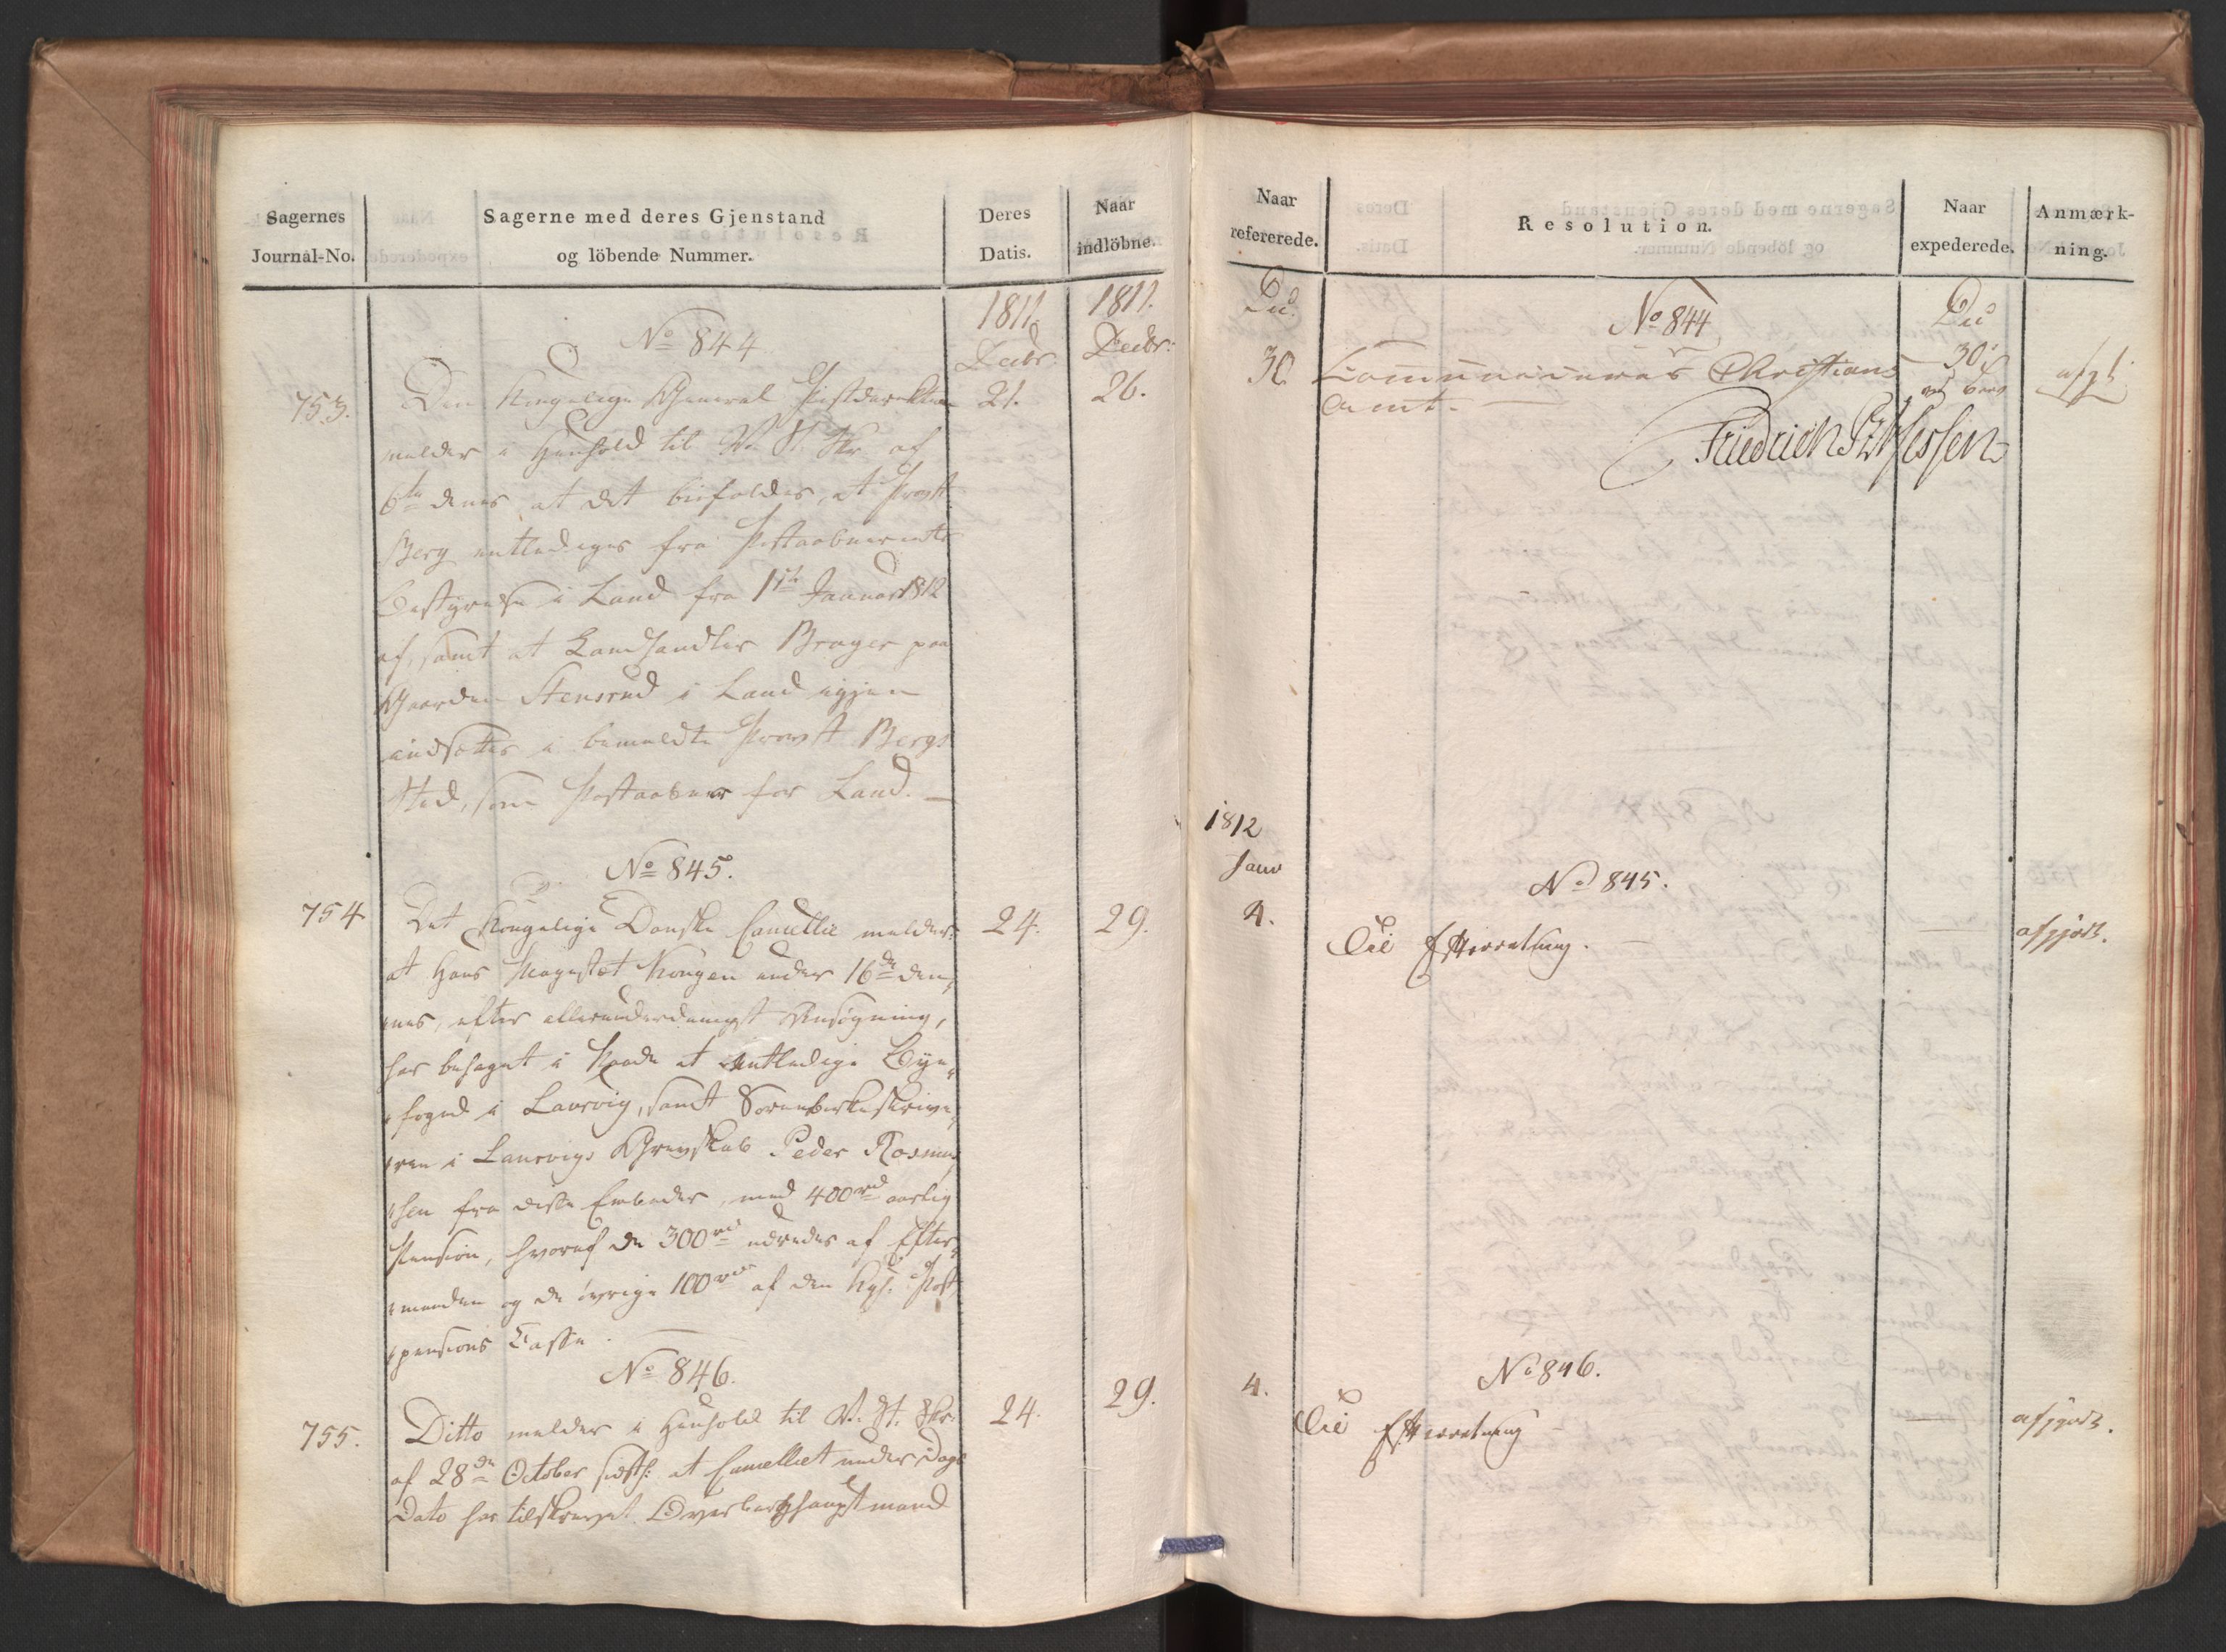 Sagernes
Journal-No.
Sagerne med deres Gjenstand
og löbende Nummer.
Deres
Datis.
Naar
indlöbne.
1811.
Decbr.
1811.
Decbr:
No 844
753.
Den Kongelige General Postdirektion
21.
26.
melder i Henhold til V. St. Skr. af
6te denes at det bifaldes, at Provst
Berg entlediges fra Postaabneriets
Bestyrelse i Land fra 1ste Januar 1812
af, samt at Landhandler Brager paa
Gaarden Stensrud i Land igjen
indsættes i bemeldte Provst Bergs
Sted, som Postaabner for Land. —
No 845.
754
Det Kongelige Danske Cancellie melder:
24.
29.
at Hans Majestæt Kongen under 16de den,
nes, efter allerunderdanigst Ansøgning,
har behaget i Naade at entledige Bye,
foged i Laurvig, samt Sorenbirkeskrive,
ren i Laurvigs Grevskab Peder Rasmus
sen fra disse Embeder, med 400 rd aarlig
Pension, hvoraf de 300 rd udredes af Efter,
manden og de øvrige 100 rd af den Kgl. Post
pensions Casse.
No 846.
755.
Ditto melder i Henhold til V. St. Skr.
24.
29.
af 28de October sidstl: at Cancelliet under Dags
Dato har tilskrevet Overberghauptmand
Naar
refererede.
Resolution.
Naar
expederede.
Anmærk-
ning.
Du.
No 844
Du
30
Communiceres Christians
30
Amt. —
afgt
Friedrich
1812
Janv
No 845.
4.
Til Efterretning. —
afgjort.
No 846.
4.
Til Efterretning
afgjort.